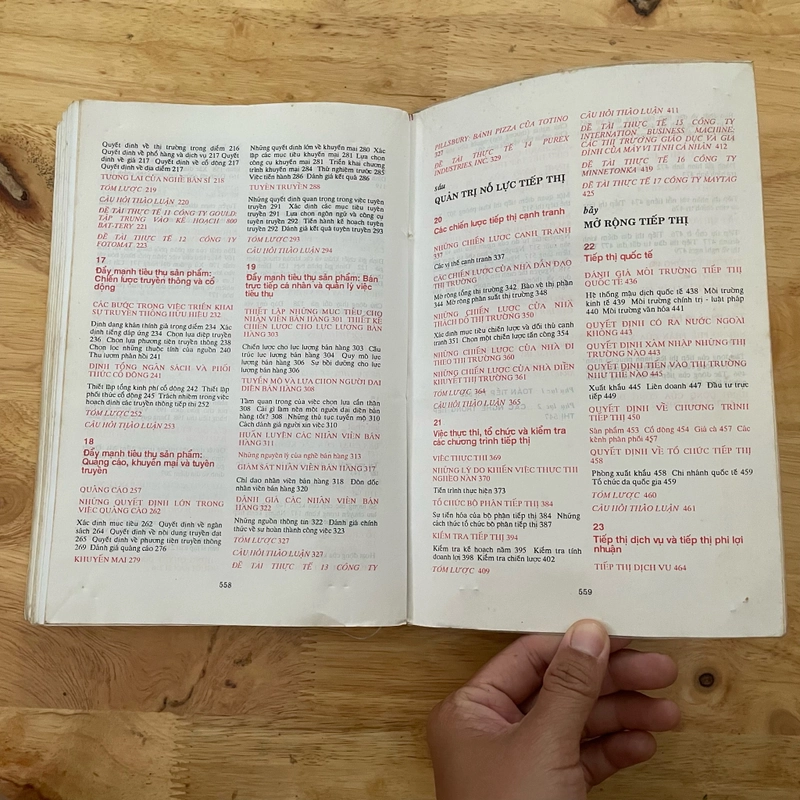 Quyết định về thị trường trọng điểm 216
Quyết định về phổ hàng và dịch vụ 217 Quyết
định về giá 217 Quyết định về cổ động 217
Quyết định về địa điểm 217
TƯƠNG LAI CỦA NGHỀ BÁN SỈ 218
TÓM LƯỢC 219
CÂU HỎI THẢO LUẬN 220
ĐỀ TÀI THỰC TẾ 11 CÔNG TY GOULD:
TẬP TRUNG VÀO KẾ HOẠCH 800
BAT-TERY 221
ĐỀ TÀI THỰC TẾ 12 CÔNG TY
FOTOMAT 223
17
Đẩy mạnh tiêu thụ sản phẩm:
Chiến lược truyền thông và cổ
động
CÁC BƯỚC TRONG VIỆC TRIỂN KHAI
SỰ TRUYỀN THÔNG HỮU HIỆU 232
Định dạng khán thính giả trọng điểm 234 Xác
định tiếng đáp ứng 234 Chọn lựa điệp truyền
236 Chọn lựa phương tiện truyền thông 238
Chọn lọc những thuộc tính của nguồn 240
Thu lượm phản hồi 241
ĐỊNH TỔNG NGÂN SÁCH VÀ PHỐI
THỨC CỔ ĐỘNG 241
Thiết lập tổng kinh phí cổ động 242 Thiết lập
phối thức cổ động 245 Trách nhiệm trong việc
hoạch định các truyền thông tiếp thị 252
TÓM LƯỢC 252
CÂU HỎI THẢO LUẬN 253
18
Đẩy mạnh tiêu thụ sản phẩm:
Quảng cáo, khuyến mại và tuyên
truyền
QUẢNG CÁO 257
NHỮNG QUYẾT ĐỊNH LỚN TRONG
VIỆC QUẢNG CÁO 262
Xác định mục tiêu 262 Quyết định về ngân
sách 264 Quyết định về nội dung truyền đạt
265 Quyết định về phương tiện truyền thông
269 Đánh giá quảng cáo 276
KHUYẾN MẠI 279
Những quyết định lớn về khuyến mại 280 Xác
lập các mục tiêu khuyến mại 281 Lựa chọn
công cụ khuyến mại 281 Triển khai chương
trình khuyến mại 284 Thử nghiệm trước 285
Việc tiến hành 286 Đánh giá kết quả 286
TUYÊN TRUYỀN 288
Những quyết định quan trọng trong việc tuyên
truyền 291 Xác định các mục tiêu tuyên
truyền 291 Lựa chọn ngôn ngữ và công cụ
tuyên truyền 292 Tiến hành kế hoạch tuyên
truyền 292 Đánh giá kết quả tuyên truyền 293
TÓM LƯỢC 293
CÂU HỎI THẢO LUẬN 294
19
Đẩy mạnh tiêu thụ sản phẩm: Bán
trực tiếp cá nhân và quản lý việc
tiêu thụ
THIẾT LẬP NHỮNG MỤC TIÊU CHO
NHÂN VIÊN BÁN HÀNG 301 THIẾT KẾ
CHIẾN LƯỢC CHO LỰC LƯỢNG BÁN
HÀNG 303
Chiến lược cho lực lượng bán hàng 303 Cấu
trúc lực lượng bán hàng 304 Quy mô lực
lượng bán hàng 306 Sự bồi dưỡng cho lực
lượng bán hàng 306
TUYỂN MỘ VÀ LỰA CHỌN NGƯỜI ĐẠI
DIỆN BÁN HÀNG 308
Tầm quan trọng của việc chọn lựa cẩn thận
308 Cái gì làm nên một người đại diện bán hàng
tốt? 308 Những thủ tục tuyển mộ 310
Cách đánh giá người xin việc 310
HUẤN LUYỆN CÁC NHÂN VIÊN BÁN
HÀNG 311
Những nguyên lý của nghề bán hàng 313
GIÁM SÁT NHÂN VIÊN BÁN HÀNG 317
Chỉ đạo nhân viên bán hàng 318 Đôn đốc
nhân viên bán hàng 320
ĐÁNH GIÁ CÁC NHÂN VIÊN BÁN
HÀNG 322
Những nguồn thông tin 322 Đánh giá chính
thức về sự hoàn thành công việc 323
TÓM LƯỢC 327
CÂU HỎI THẢO LUẬN 327
ĐỀ TÀI THỰC TẾ 13 CÔNG TY
558
PILLSBURY: BÁNH PIZZA CỦA TOTINO
327
ĐỀ TÀI THỰC TẾ 14 PUREX
INDUSTRIES, INC. 329
sáu
QUẢN TRỊ NỖ LỰC TIẾP THỊ
20
Các chiến lược tiếp thị cạnh tranh
NHỮNG CHIẾN LƯỢC CẠNH TRANH
337
Các vị thế cạnh tranh 337
CÁC CHIẾN LƯỢC CỦA NHÀ DẪN ĐẠO
THỊ TRƯỜNG
Mở rộng tổng thị trường 342 Bảo vệ thị phần
344 Mở rộng phần suất thị trường 348
NHỮNG CHIẾN LƯỢC CỦA NHÀ
THÁCH ĐỐ THỊ TRƯỜNG 350
Xác định mục tiêu chiến lược và đối thủ cạnh
tranh 351 Chọn một chiến lược tấn công 354
NHỮNG CHIẾN LƯỢC CỦA NHÀ ĐI
THEO THỊ TRƯỜNG 360
NHỮNG CHIẾN LƯỢC CỦA NHÀ ĐIỀN
KHUYẾT THỊ TRƯỜNG 361
TÓM LƯỢC 364
CÂU HỎI THẢO LUẬN 365
21
Việc thực thi, tổ chức và kiểm tra
các chương trình tiếp thị
VIỆC THỰC THI 369
NHỮNG LÝ DO KHIẾN VIỆC THỰC THI
NGHÈO NÀN 370
Tiến trình thực hiện 373
TỔ CHỨC BỘ PHẬN TIẾP THỊ 384
Sự tiến hóa của bộ phận tiếp thị 384 Những
cách thức tổ chức bộ phận tiếp thị 387
KIỂM TRA TIẾP THỊ 394
Kiểm tra kế hoạch năm 395 Kiểm tra tính
doanh lợi 398 Kiểm tra chiến lược 402
TÓM LƯỢC 409
CÂU HỎI THẢO LUẬN 411
ĐỀ TÀI THỰC TẾ 15 CÔNG TY
INTERNATION BUSINESS MACHINE:
CÁC THỊ TRƯỜNG GIÁO DỤC VÀ GIA
ĐÌNH CỦA MÁY VI TÍNH CÁ NHÂN 412
ĐỀ TÀI THỰC TẾ 16 CÔNG TY
MINNETONKA 419
ĐỀ TÀI THỰC TẾ 17 CÔNG TY MAYTAG
425
bảy
MỞ RỘNG TIẾP THỊ
22
Tiếp thị quốc tế
ĐÁNH GIÁ MÔI TRƯỜNG TIẾP THỊ
QUỐC TẾ 436
Hệ thống mậu dịch quốc tế 438 Môi trường
kinh tế 439 Môi trường chính trị - luật pháp
440 Môi trường văn hóa 441
QUYẾT ĐỊNH CÓ RA NƯỚC NGOÀI
KHÔNG 443
QUYẾT ĐỊNH XÂM NHẬP NHỮNG THỊ
TRƯỜNG NÀO 443
QUYẾT ĐỊNH TIẾN VÀO THỊ TRƯỜNG
NHƯ THẾ NÀO 445
Xuất khẩu 445 Liên doanh 447 Đầu tư trực
tiếp 449
QUYẾT ĐỊNH VỀ CHƯƠNG TRÌNH
TIẾP THỊ 450
Sản phẩm 453 Cổ động 454 Giá cả 457 Các
kênh phân phối 457
QUYẾT ĐỊNH VỀ TỔ CHỨC TIẾP THỊ
458
Phòng xuất khẩu 458 Chi nhánh quốc tế 459
Tổ chức đa quốc gia 459
TÓM LƯỢC 460
CÂU HỎI THẢO LUẬN 461
23
Tiếp thị dịch vụ và tiếp thị phi lợi
nhuận
TIẾP THỊ DỊCH VỤ 464
559